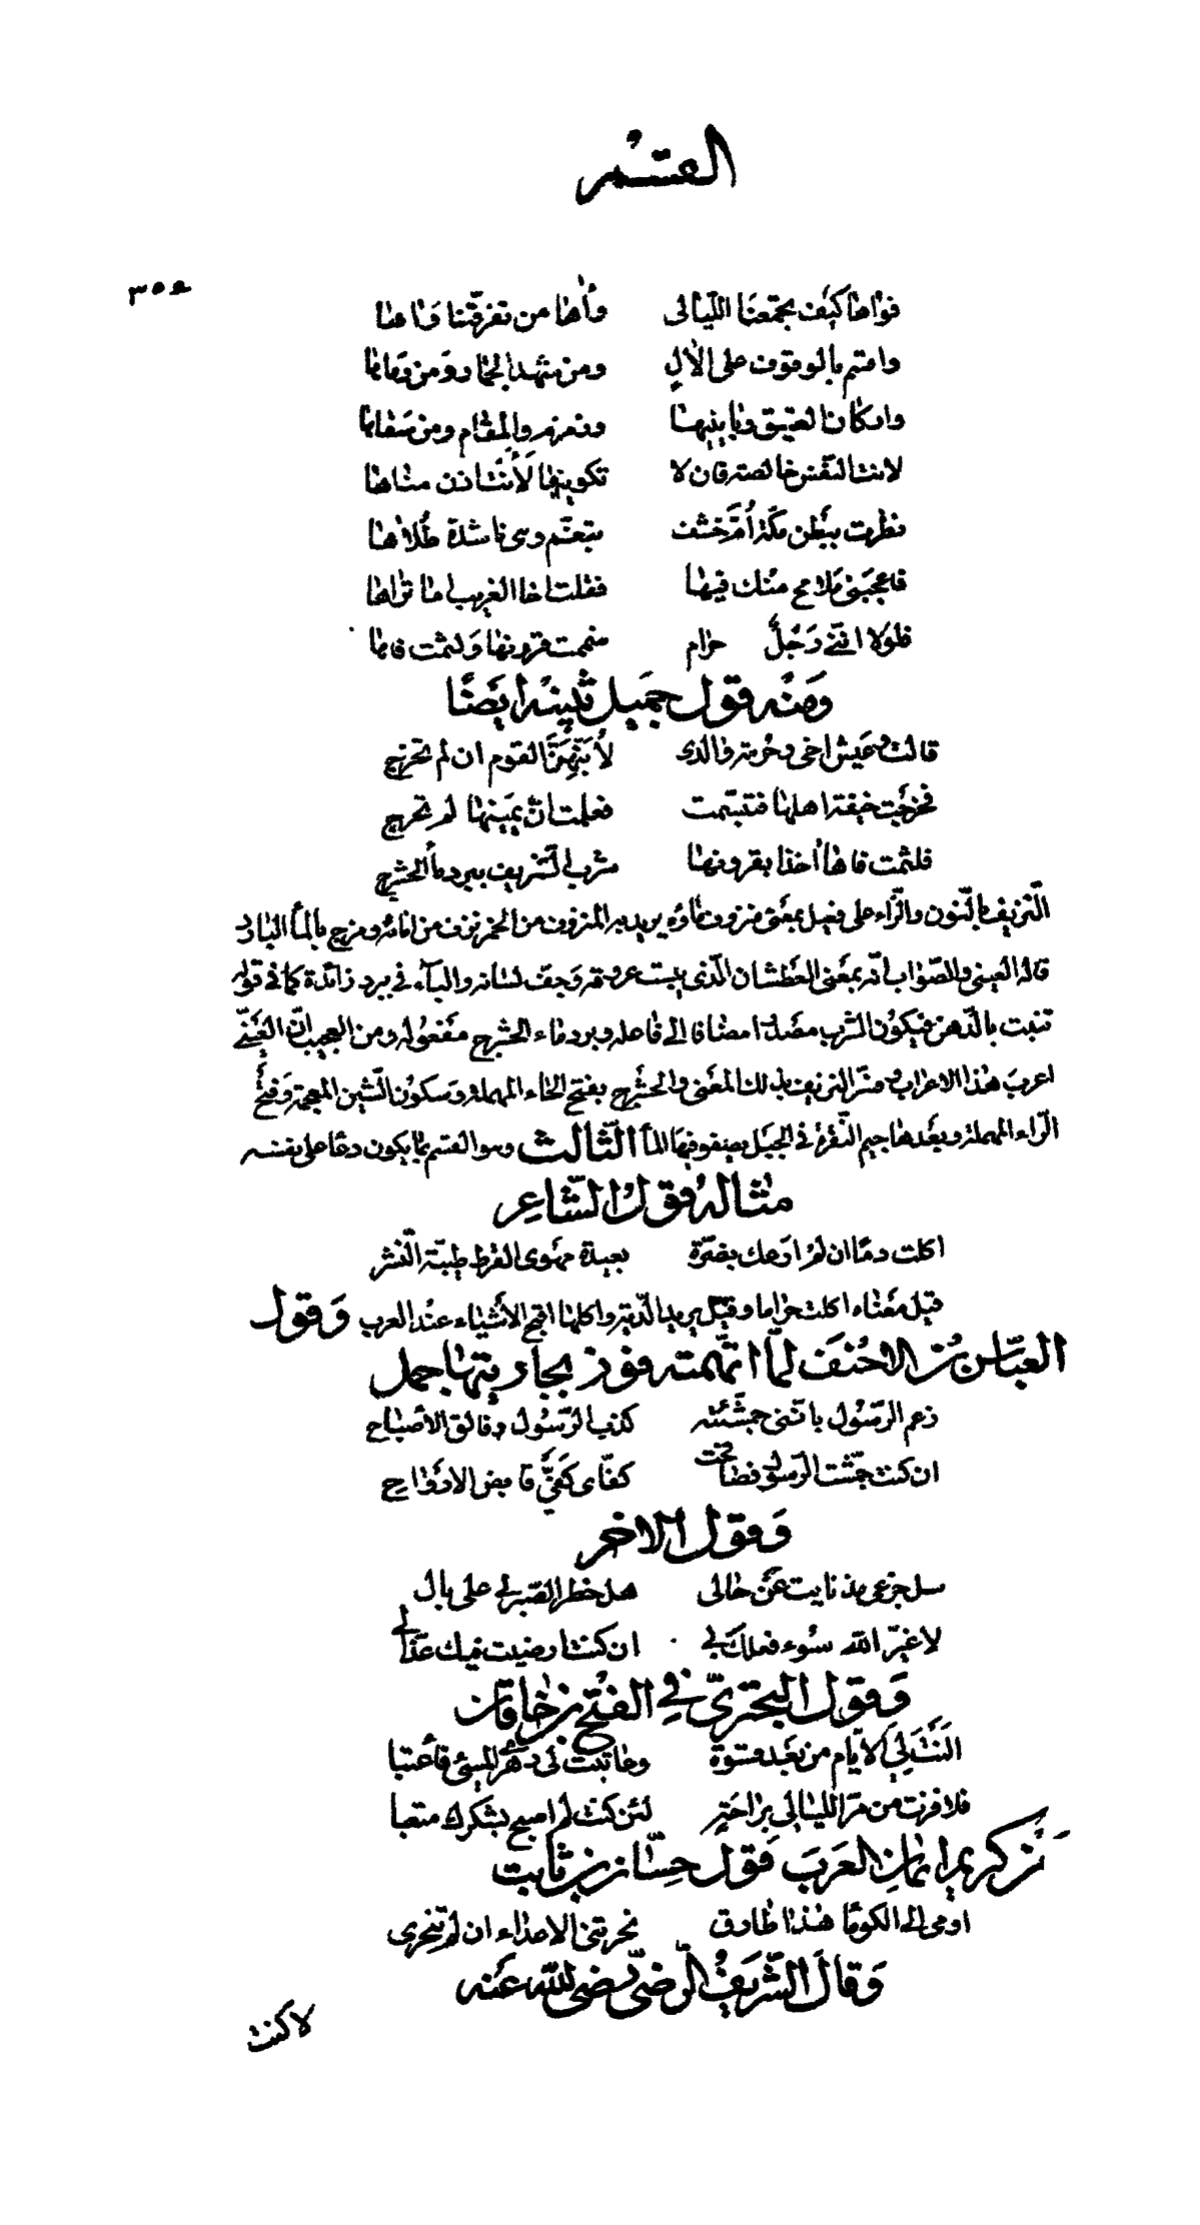 القسم
٣٥٤
فواها كيف تجمعنا الليالى وآها من تفرقنا وآها
واقسم بالوقوف على الال ومن شهد الجمار ومن رماها
واركان العتيق وبانيها وزمزم والمقام ومن سقاها
لانت النفس خالصة فان لا تكونيها لأنت اذن مناها
نظرت ببطن مكة أم خشف تبغم وهى ناشدة طلاها
فاعجبنى ملامح منك فيها فقلت اخا الغريب اما تراها
فلولا اننى رجل حرام ضممت قرونها ولثمت فاها
ومنه قول جميل بثينة ايضا
قالت وعيش اخى وحرمة والدى لأنبهن القوم ان لم تخرج
فخرجت خيفة اهلها فتبسمت فعلمت ان يمينها لم تحرج
فلثمت فاها أخذا بقرونها شرب النزيف ببرد مأ الحشرج
النزيف بالنون والزاء على فعيل بمعنى منزوف ماؤه يريد به المنزوف من الخمر نزف من انائه ومزج بالمأ البارد
قاله العينى والصواب انه بمعنى العطشان الذى يبست عروقه وجف لسانه والبآء فى ببرد زائدة كما فى قوله
تنبت بالدهن فيكون الشرب مصدرا مضافا الى فاعله وبرد ماء الحشرج مفعوله ومن العجيب ان العينى
اعرب هذا الاعراب وفسر النزيف بذلك المعنى والحشرج بفتح الحاء المهملة وسكون الشين المعجمة وفتح
الراء المهملة وبعدها جيم النقرة فى الجبل يصفو فيها المأ الثالث وهو القسم بما يكون دعا على نفسه
مثاله قول الشاعر
اكلت دما ان لم ارعك بضرة بعيدة مهوى القرط طيبة النشر
قيل معناه اكلت حراما وقيل يريد الدية واكلها اقبح الأشياء عند العرب وقول
العباس بن الاحنف لما اتهمته فوز بجاريتها جمل
زعم الرسول باننى جمشته كذب الرسول وفالق الاصباح
ان كنت جمشت الرسول فصافحت كفاى كفى قابض الارواح
وقول الاخر
سل جزعى مذ نايت عن حالى هل خطر الصبر لى على بال
لا غير الله سوء فعلك بى ان كنت ارضيت فيك عذالى
وقول البحترى فى الفتح بن خاقان
الننت لى الايام من بعد قسوة وعاتبت لى دهر المسئ فأعتبا
فلا فزت من مر الليالى براحة لئن كنت لم اصبح بشكرك متعبا
كريم ايمان العرب قول حسان بن ثابت
اومى الى الكوما هذا طارق نحرتنى الاعداء ان لم تنحرى
وقال الشريف الرضى رضى الله عنه
لا كنت